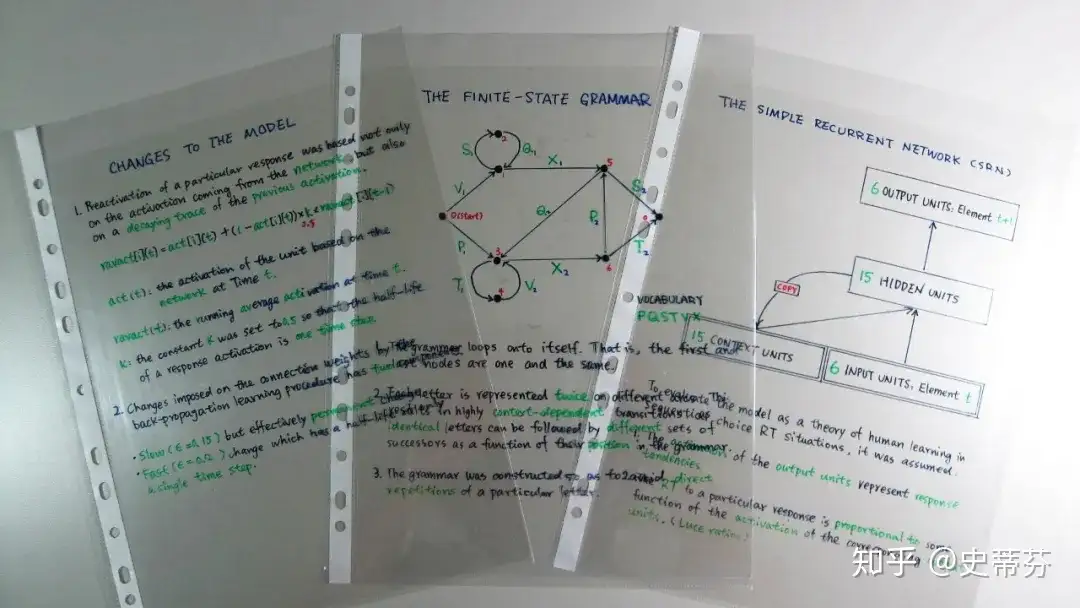 CHANGES TO THE MODEL
1. Preactivation of a particular response was based not only
on the activation coming from the network but also
on a decaying trace of the previous activation.
ravact[i](t) = act[i](t) + (1 - act[i](t)) × k × ravact[i](t-1)
0.5
act(t): the activation of the unit based on the
network at Time t.
ravact(t): the running average activation at time t.
K: the constant K was set to 0.5 so that the half-life
of a response activation is one time step.
2. Changes imposed on the connection weights by the
back-propagation learning procedure has two
• Slow (ε = 0.15) but effectively permanent
• Fast (ε = 0.2) change which has a half-life
a single time step.
THE FINITE-STATE GRAMMAR
S1
Q1
X1
5
V1
S2
0(start)
0
Q2
P2
P1
T2
3
X2
6
T1
V2
4
1. The grammar loops onto itself. That is, the first and
last nodes are one and the same.
2. Each letter is represented twice on different
results in highly context-dependent transitions
identical letters can be followed by different sets of
successors as a function of their position in the grammar.
3. The grammar was constructed so as to avoid direct
repetitions of a particular letter.
THE SIMPLE RECURRENT NETWORK (SRN)
6 OUTPUT UNITS: Element t+1
15 HIDDEN UNITS
COPY
VOCABULARY
PQSTVX
15 CONTEXT UNITS
6 INPUT UNITS: Element t
To evaluate the model as a theory of human learning in
choice RT situations, it was assumed.
1. The activation of the output units represent response
tendencies
2. The RT to a particular response is proportional to some
function of the activation of the corresponding
units. (Luce ratio)
知乎 @史蒂芬